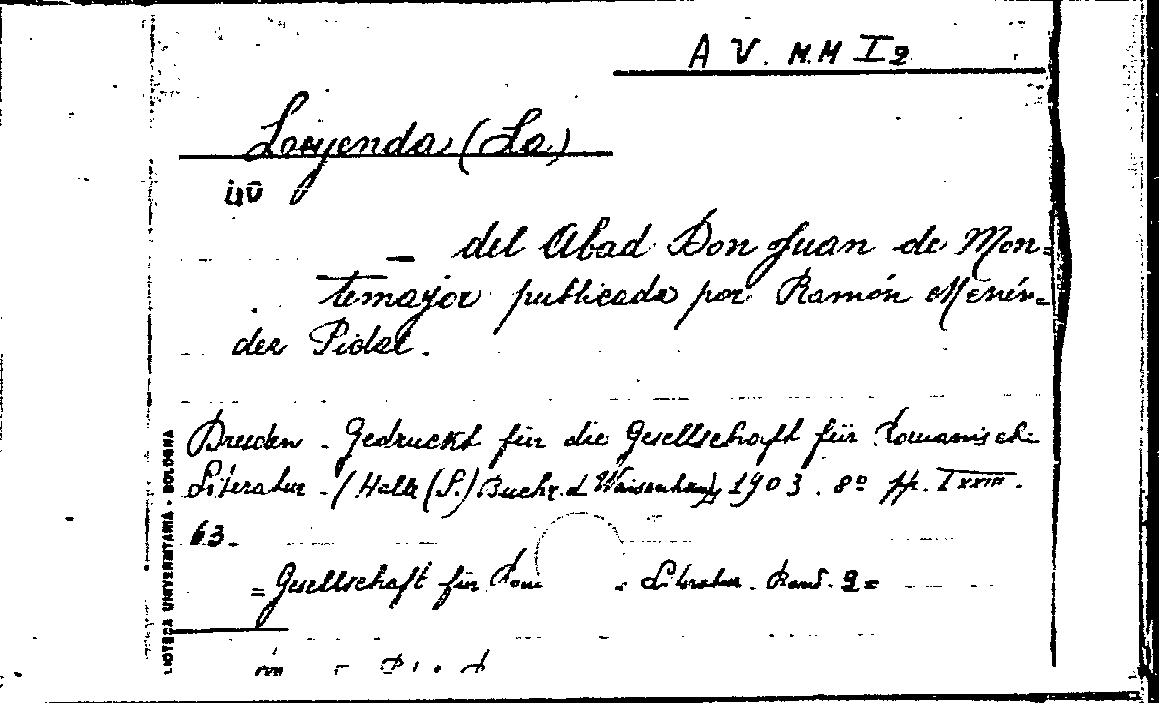 A V. M.M I 2
Leyenda (La)
del Abad Don Juan de Mon=
temayor publicada por Ramón Menén=
dez Pidal.
Dresden - Gedruckt für die Gesellschaft für Romanische
Literatur - (Halle (S.) Buchr. d. Waisenhaus), 1903. 8º pp. LXXIII.
63.
= Gesellschaft für Rom . Literatur. Band. 2 =
LIOTECA UNIVERSITARIA - BOLOGNA